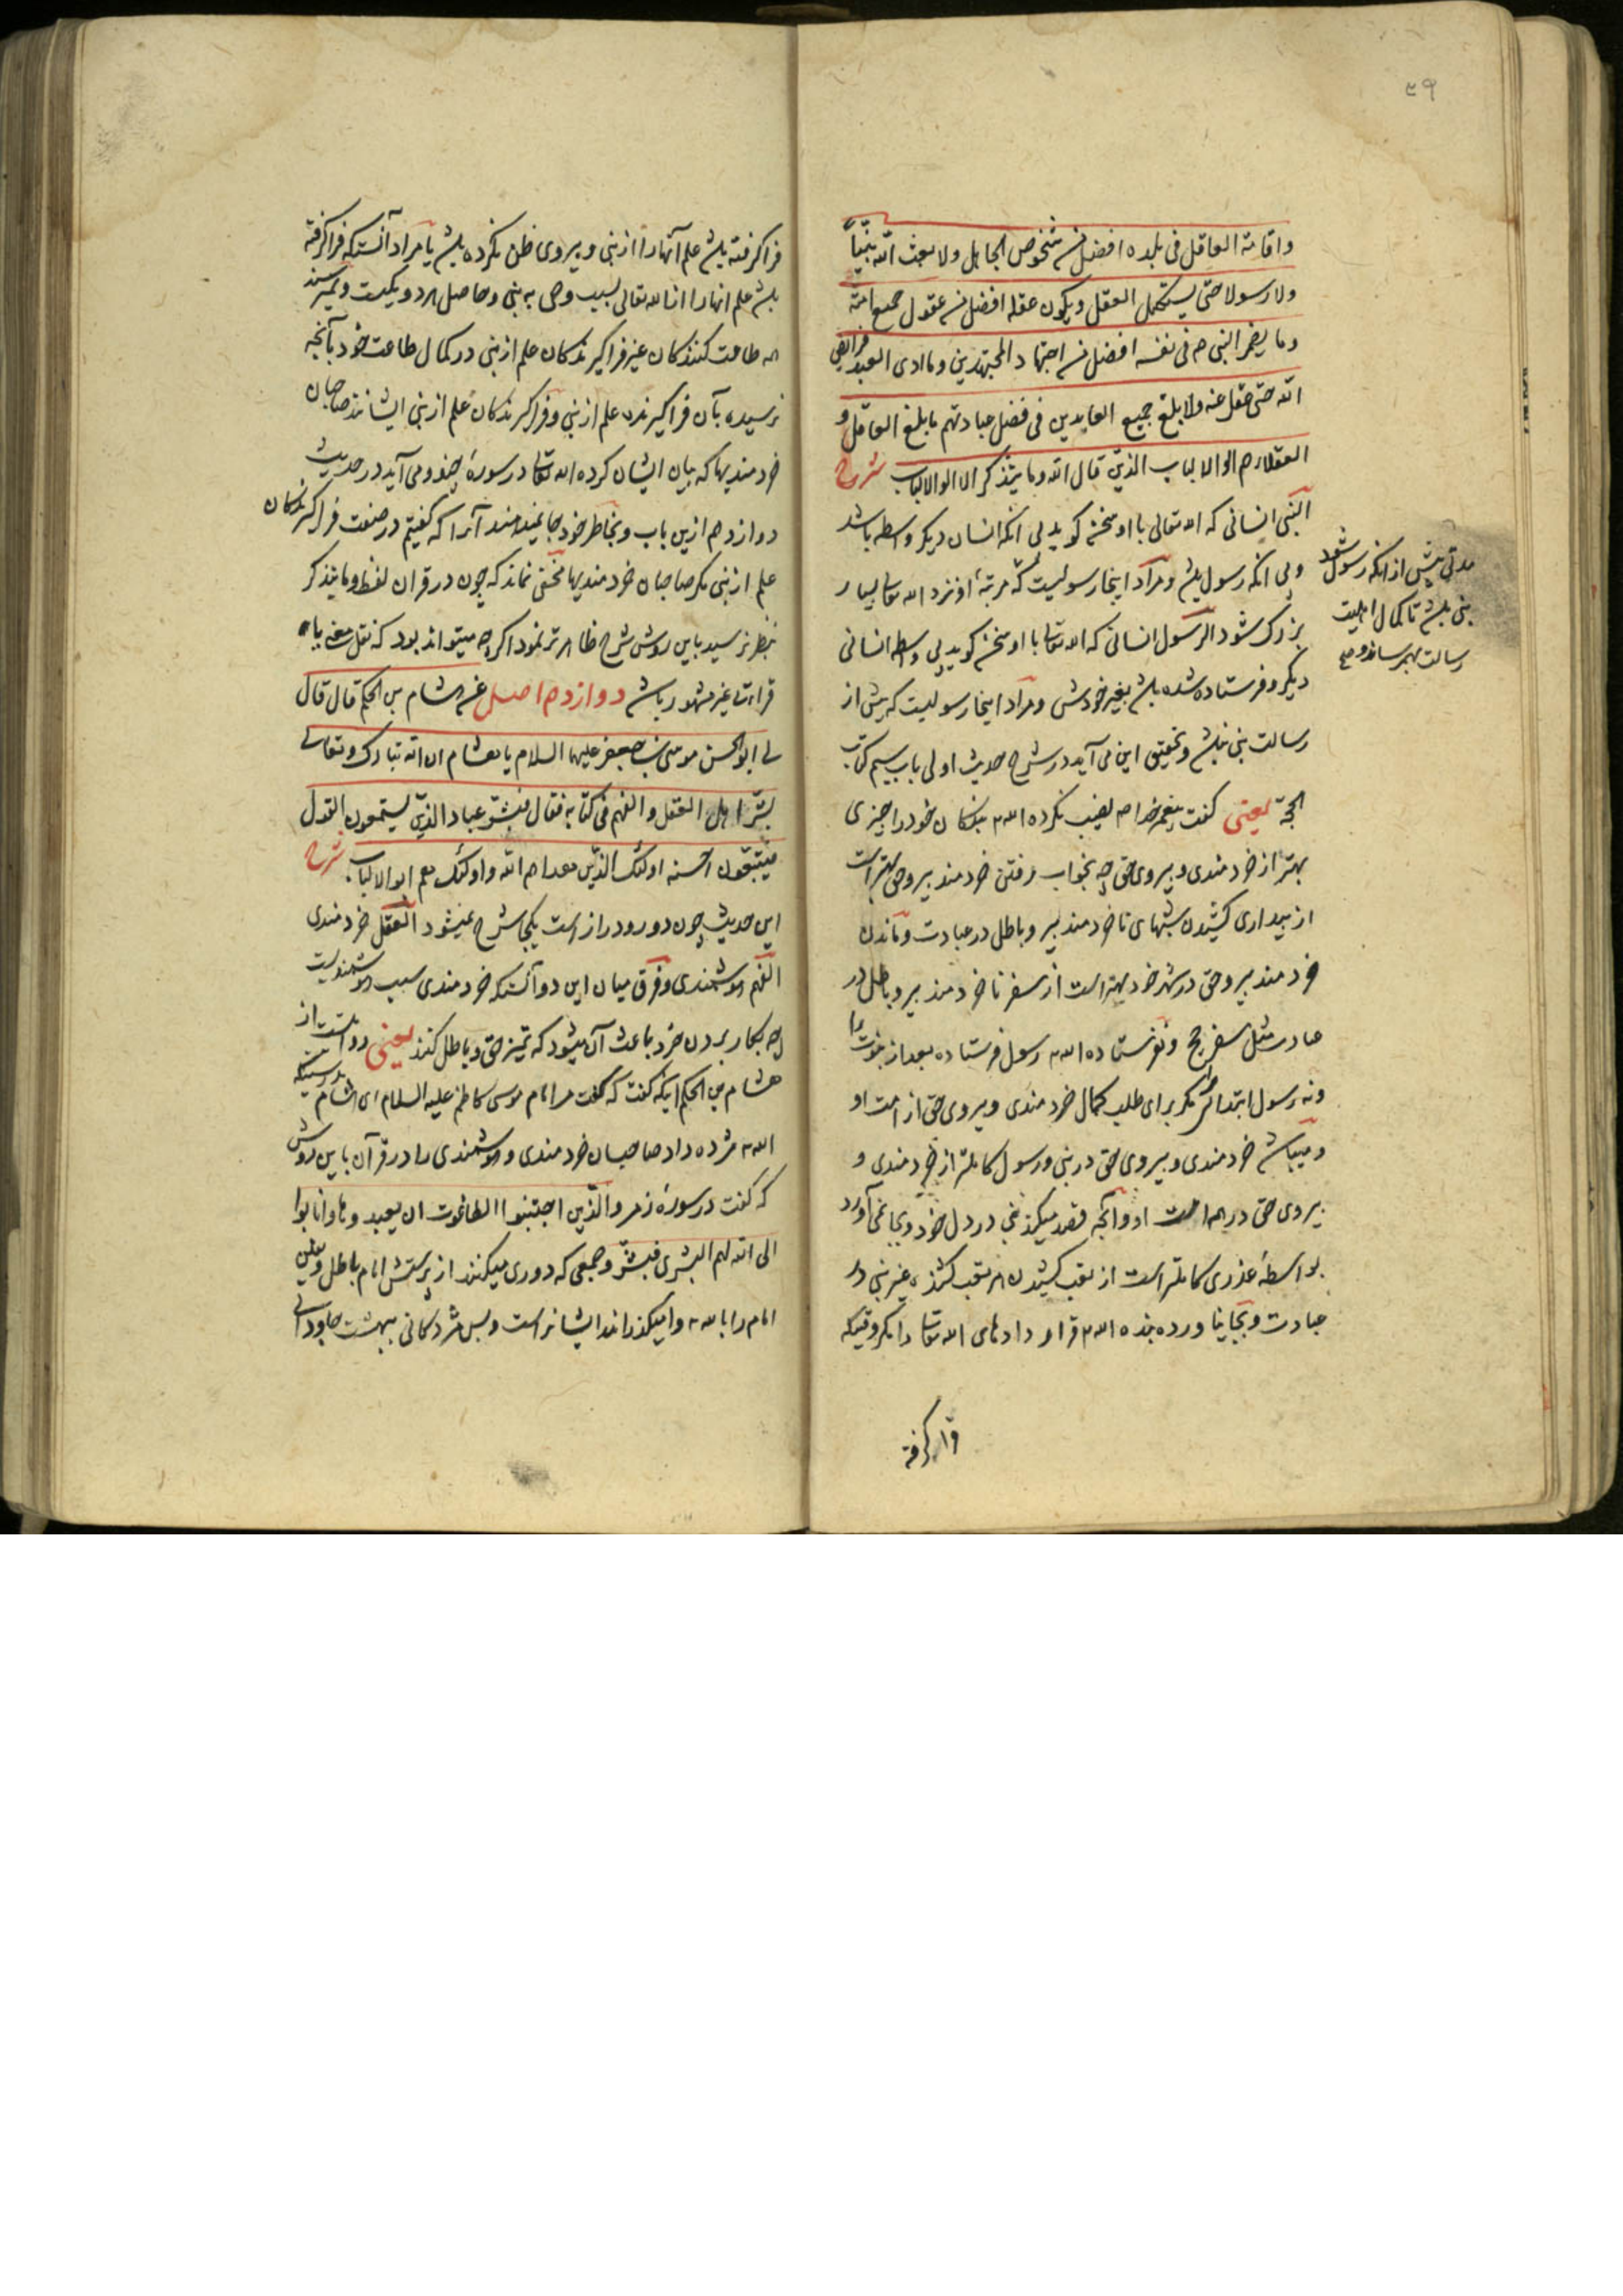 ۵۹
واقامة العاقل فی بلده افضل من شخوص الجاهل ولا بعث الله نبیاً
ولا رسولا حتی یستکمل العقل ویکون عقله افضل من عقول جمیع امته
وما یضمر النبی ص فی نفسه افضل من اجتهاد المجتهدین وما ادی العبد فرایض
الله حتی عقل عنه ولا بلغ جمیع العابدین فی فضل عبادتهم ما بلغ العاقل و
العقلاء هم اولوا الالباب الذین قال الله وما یتذکر الا اولوا الالباب شرح
النبی انسانی که الله تعالی با او سخن کوید بی انکه انسان دیکر واسطه باشد
وبی انکه رسول باشد ومراد اینجا رسولیست که مرتبۀ او نزد الله تعالی بسیار
بزرک شود الرسول انسانی که الله تعالی با او سخن کوید بی واسطه انسانی
دیکر وفرستاده شده باشد بغیر خودش ومراد اینجا رسولیست که پیش از
رسالت نبی باشد وتحقیق این می آید در شرح حدیث اول باب سیم کتاب
الحجة یعنی کفت پیغمبر خدا ص نصیب نکرده الله بندکان خود را چیزی
بهتر از خردمندی وپیروی حق چه بخواب رفتن خردمند پیرو حق بهتر است
از بیداری کشیدن شبهای ناخردمند پیرو باطل در عبادت وماندن
خردمند پیرو حق در شهر خود بهتر است از سفر ناخردمند پیرو باطل در
عبادت مثل سفر حج ونفرستاده الله رسول فرستاده بعد از نبوت را
ونه رسول ابتدا مکر برای طلب کمال خردمندی وپیروی حق از امت او
ومیباشد خردمندی وپیروی حق در نبی ورسول کاملتر از خردمندی و
پیروی حق در همه امت او وآنچه قصد میکند نبی در دل خود وبجا نمی آورد
بواسطۀ عذری کاملتر است از تعب کشیدن هر تعب کشنده غیر نبی در
عبادت وبجا نیاورده بنده الله قرار دادهای الله تعالی را مکر وقتیکه
فرا کرفته
مدتی پیش از انکه رسول شود
نبی باشد تا کمال اهلیت
رسالت بهم رساند وصح
فرا کرفته باشد علم آنها را از نبی وپیروی ظن نکرده باشد یا مراد آنستکه فرا کرفته
باشد علم انها را از الله تعالی بسبب وحی به نبی وحاصل هر دو یکیست ونمیرسند
همه طاعت کنندکان غیر فراکیرندکان علم از نبی در کمال طاعت خود بآنچه
رسیده بآن فراکیرنده علم از نبی وفراکیرندکان علم از نبی ایشانند صاحبان
خردمندیها که بیان ایشان کرده الله تعالی در سورۀ ومی آید در حدیث
دوازدهم ازین باب وبخاطر خود جا نمیدهند آنرا که کفتیم در صنعت فراکیرندکان
علم از نبی مکر صاحبان خردمندیها مخفی نماند که چون در قران لفظ وما یتذکر
بنظر نرسید باین روش شرح ظاهرتر نمود اکرچه میتواند بود که نقل معنی یا
قراءت غیر مشهور باشد دوازدهم اصل عن هشام بن الحکم قال قال
لی ابو الحسن موسی بن جعفر علیهما السلام یا هشام ان الله تبارک وتعالی
بشر اهل العقل والفهم فی کتابه فقال فبشر عباد الذین یستمعون القول
فیتبعون احسنه اولئک الذین هداهم الله واولئک هم اولوا الالباب شرح
این حدیث چون دور ودراز است یکجا شرح نمیشود العقل خردمندی
الفهم هوشمندی وفرق میان این دو آنستکه خردمندی سبب هوشمندیست
چه بکار بردن خرد باعث آن میشود که تمیز حق وباطل کنند یعنی روایتست از
هشام بن الحکم اینکه کفت که کفت مرا امام موسی کاظم علیه السلام ای هشام بدرستیکه
الله مژده داد صاحبان خردمندی وهوشمندی را در قرآن باین روش
که کفت در سورۀ زمر والذین اجتنبوا الطاغوت ان یعبدوها وانابوا
الی الله لهم البشری فبشر وجمعی که دوری میکنند از پرستش امام باطل وتعیین
امام را بالله وامیکذارند ایشانراست وبس مژدکانی بهشت جاودانی